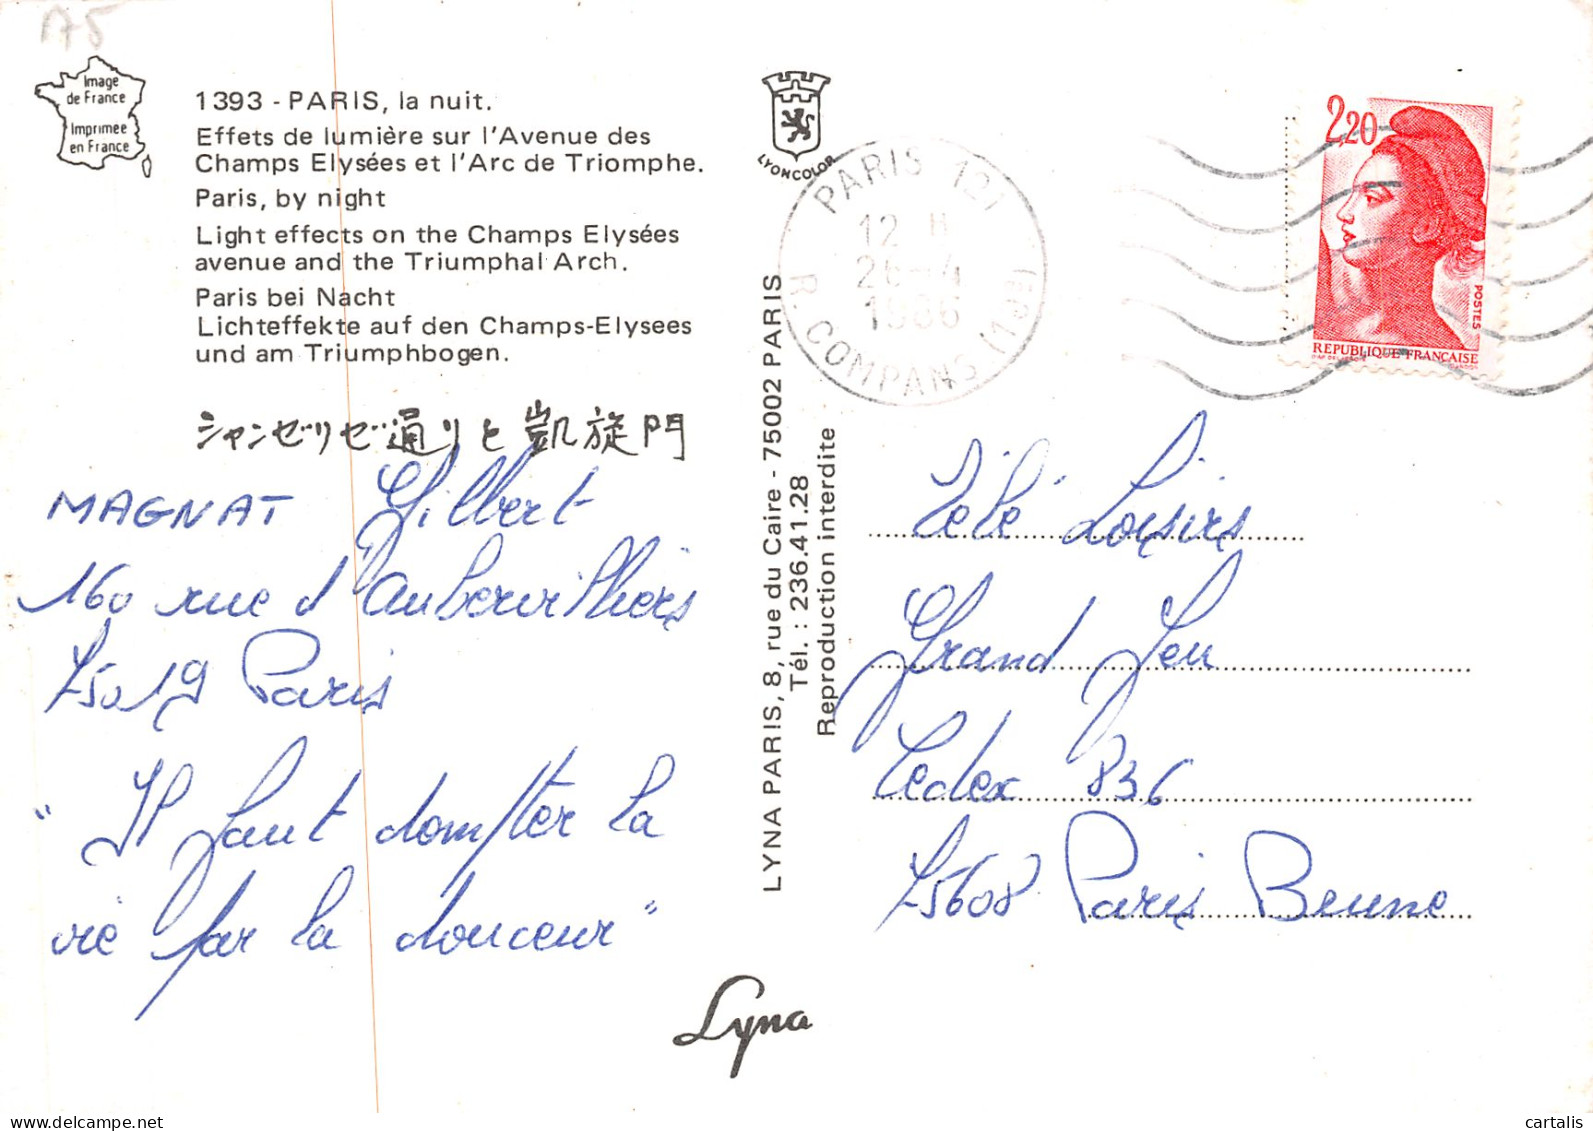 A5
Image
de France
Imprimee
en France
1393 - PARIS, la nuit.
Effets de lumière sur l'Avenue des
Champs Elysées et l'Arc de Triomphe.
Paris, by night
Light effects on the Champs Elysées
avenue and the Triumphal Arch.
Paris bei Nacht
Lichteffekte auf den Champs-Elysees
und am Triumphbogen.
シャンゼリゼ通りと凱旋門
MAGNAT Gilbert
160 rue d'Aubervilliers
75019 Paris
" Il faut dompter la
vie par la douceur "
LYONCOLOR
LYNA PARIS, 8, rue du Caire - 75002 PARIS
Tél. : 236.41.28
Reproduction interdite
Lyna
PARIS 121
12 H
26-4
1986
R. COMPANS (19E)
2,20
POSTES
REPUBLIQUE FRANÇAISE
Télé Loisirs
Grand Jeu
Cedex 836
75608 Paris Brune
cartalis